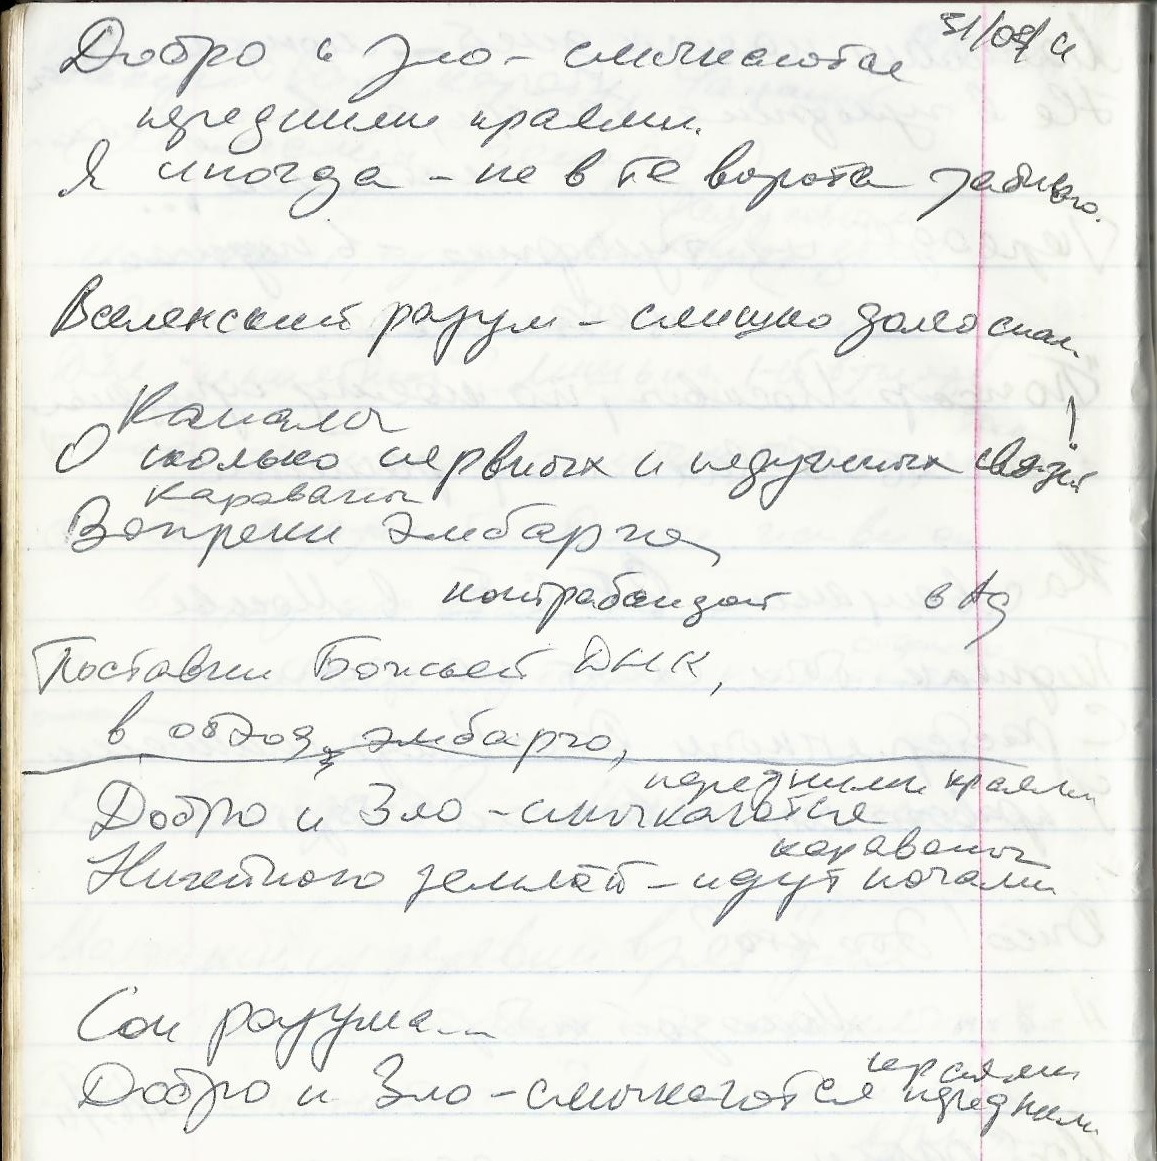 31/08/
Добро и Зло - смыкаются
передними краями.
Я иногда - не в те ворота забиваю.
Вселенский разум - слишко долго спал.
Каналы
О сколько нервных и недужных связей!
Караваны
Вопреки эмбарго,
контрабандой в Ад
Поставки Божьей ДНК,
в обход эмбарго,
передними краями
Добро и Зло - смыкаются
караваны
Ничейною землёй - идут ночами
Сон разума...
краями
Добро и Зло - смыкаются передними